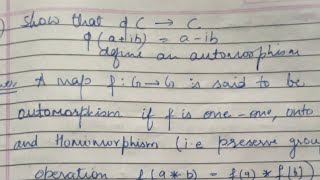 ) show that φ C → C
φ(a+ib) = a-ib
define an automorphism
A map f: G → G is said to be
automorphism if f is one-one, onto
and Homomorphism (i.e preserve grou
operation f(a * b) = f(a) * f(b))